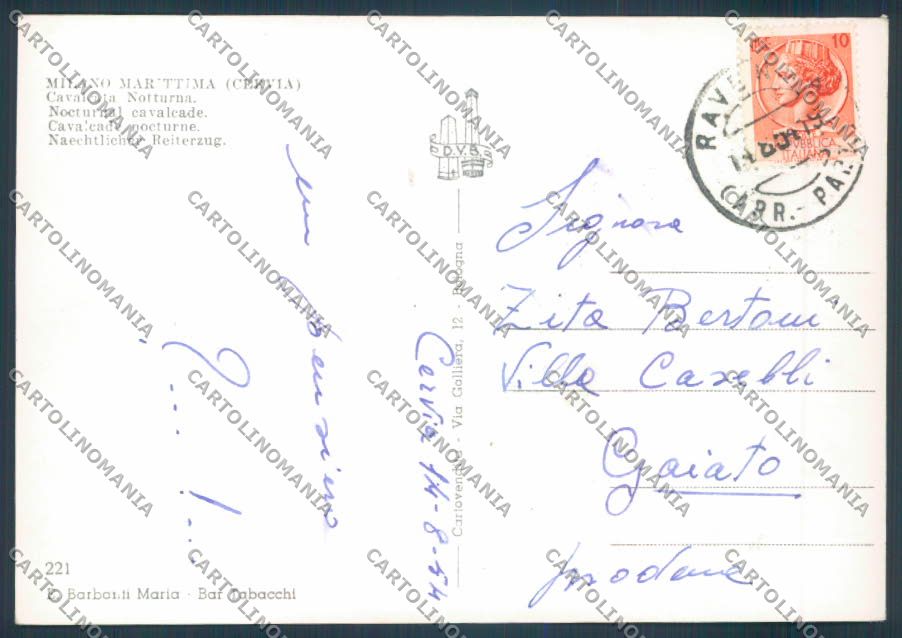 MILANO MARITTIMA (CERVIA)
Cavalcata Notturna.
Nocturnal cavalcade.
Cavalcade nocturne.
Naechtlicher Reiterzug.
D.V.B.
10
REPUBBLICA
ITALIANA
RAVENNA
14.8.54
(ARR.-PAR
un pensiero
?.... !...
Cervia 14-8-54
Cartovendita - Via Galliera, 12 - Bologna
Signora
Zita Bertoni
Villa Caselli
Gaiato
Modena
221
Barbanti Maria - Bar Tabacchi
CARTOLINOMANIA